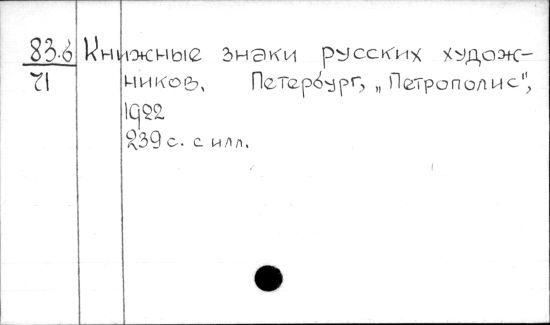 83.6 Книжные знаки русских худож-
71 ников. Петербург, „Петрополис",
1922
239 с. с илл.